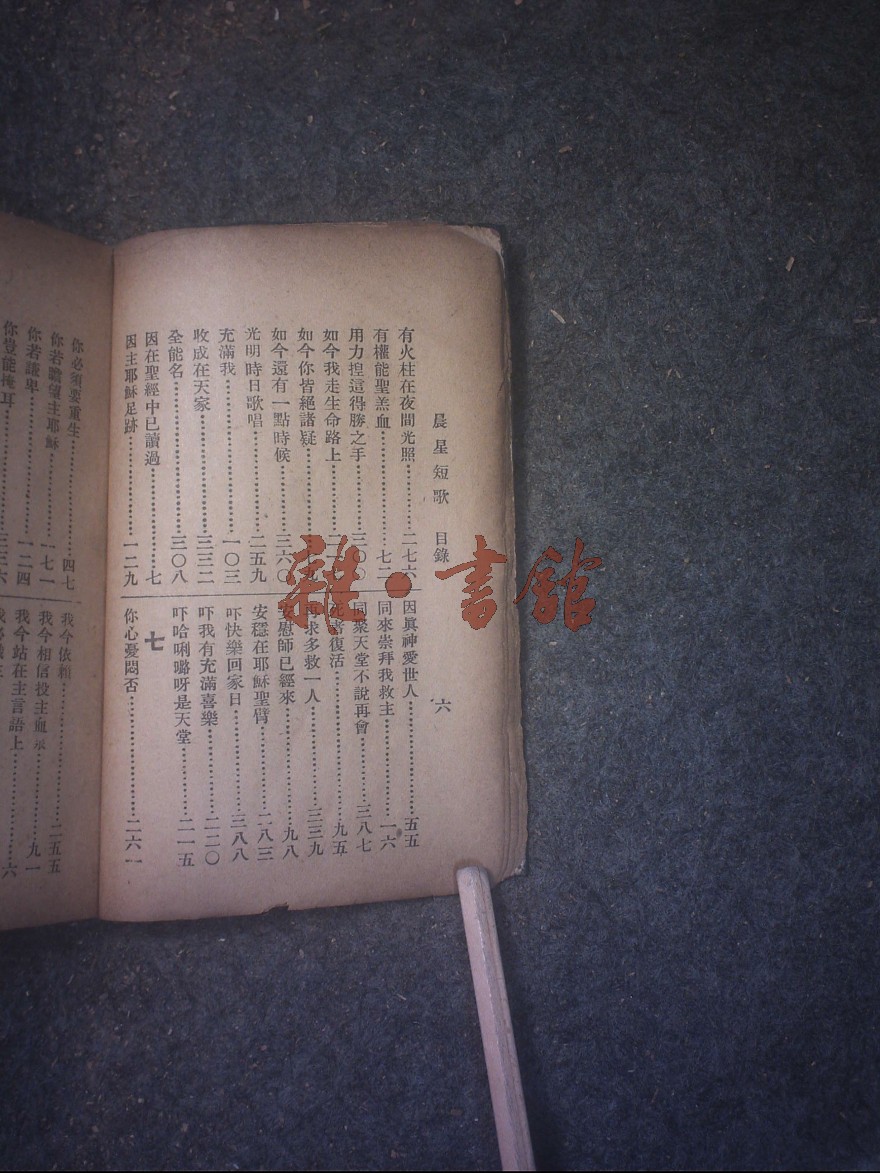 晨星短歌 目錄 六
有火柱在夜間光照………二七六
有權能聖羔血………七二
用力揑這得勝之手………三〇〇
如今我走生命路上………
如今你皆絕諸疑………
如今還有一點時候………三六〇
光明時日歌唱………二五九
充滿我………一〇三
收成在天家………三三二
全能名………三〇八
因在聖經中已讀過………七
因主耶穌足跡………一二九
因眞神愛世人………五五
同來崇拜我救主………一六
同聚天堂不說再會………三八七
死者復活………九五
再求多救一人………三三九
安慰師已經來………九八
安穩在耶穌聖臂………二八三
吓快樂回家日………三八八
吓我有充滿喜樂………二二〇
吓哈唎嚕呀是天堂………二一五
七
你心憂悶否………二六一
你必須要重生………四七
你若瞻望主耶穌………一七一
你若謙卑………一二四
你豈能掩耳………三三六
我今依賴………二五五
我今相信投主血泉………九一
我今站在主言語上………六
雜·書館